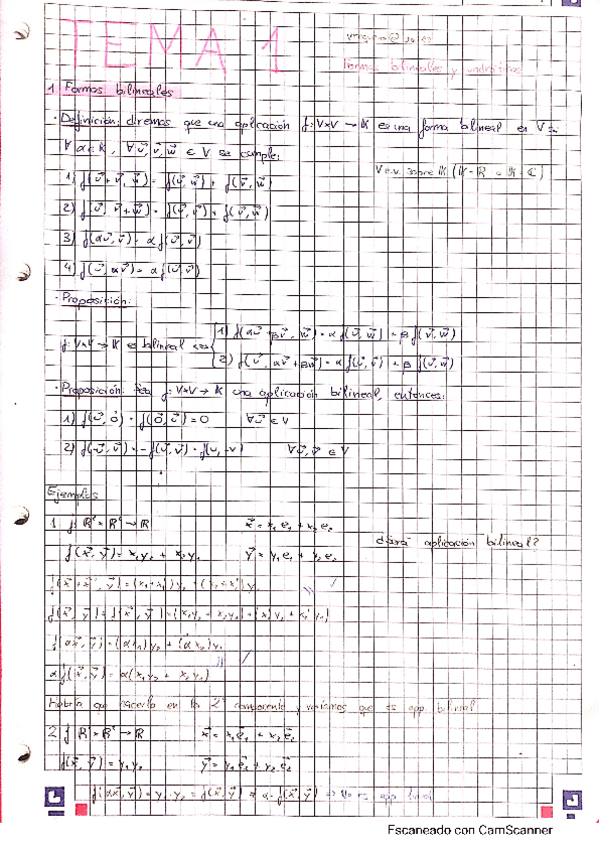 TEMA 1
formas bilineales y cuadráticas
1 Formas bilineales
· Definición: diremos que una aplicación f: V×V → K es una forma bilineal en V
∀ α ∈ K, ∀ u⃗, v⃗, w⃗ ∈ V se cumple:
V e.v. sobre K (K = R o K = C)
1) f(u⃗ + v⃗, w⃗) = f(u⃗, w⃗) + f(v⃗, w⃗)
2) f(u⃗, v⃗ + w⃗) = f(u⃗, v⃗) + f(u⃗, w⃗)
3) f(αu⃗, v⃗) = α f(u⃗, v⃗)
4) f(u⃗, αv⃗) = α f(u⃗, v⃗)
· Proposición:
f: V×V → K es bilineal <=>
1) f(αu⃗ + βv⃗, w⃗) = α f(u⃗, w⃗) + β f(v⃗, w⃗)
2) f(u⃗, αv⃗ + βw⃗) = α f(u⃗, v⃗) + β f(v⃗, w⃗)
· Proposición: Sea f: V×V → K una aplicación bilineal, entonces:
1) f(u⃗, 0⃗) = f(0⃗, u⃗) = 0 ∀ u⃗ ∈ V
2) f(-u⃗, v⃗) = - f(u⃗, v⃗) = f(u, -v) ∀ u⃗, v⃗ ∈ V
Ejemplos
1 f: R² × R² → R x⃗ = x₁e₁ + x₂e₂
f(x⃗, y⃗) = x₁y₂ + x₂y₁ y⃗ = y₁e₁ + y₂e₂
¿Será aplicación bilineal?
f(αx⃗, y⃗) = (αx₁)y₂ + (αx₂)y₁
αf(x⃗, y⃗) = α(x₁y₂ + x₂y₁)
Habría que hacerlo en la 2ª componente y veríamos que es app bilineal
2 f R² × R² → R x⃗ = x₁e⃗₁ + x₂e⃗₂
f(x⃗, y⃗) = y₁y₂ y⃗ = y₁e⃗₁ + y₂e⃗₂
f(αx⃗, y⃗) = y₁·y₂ = f(x⃗, y⃗) ≠ α·f(x⃗, y⃗) => No es app
Escaneado con CamScanner